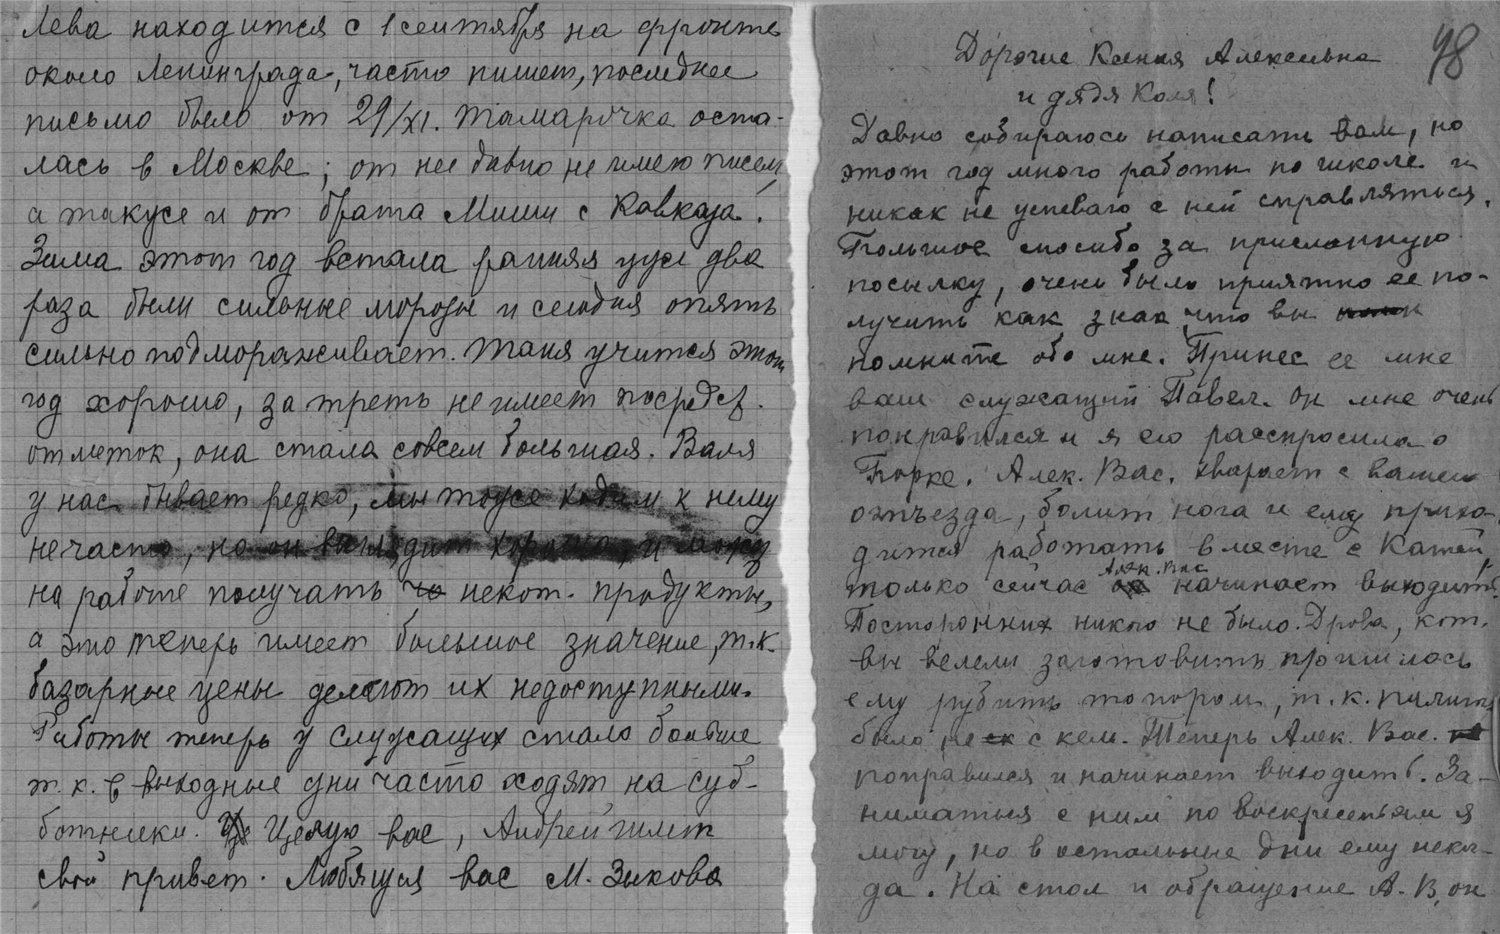 98
Дорогие Ксения Алексеевна
и дядя Коля!
Давно собираюсь написать вам, но
этот год много работы по школе и
никак не успеваю с ней справляться.
Большое спасибо за присланную
посылку, очень было приятно ее по-
лучить как знак что вы
помните обо мне. Принес ее мне
ваш служащий Павел. он мне очень
понравился и я его расспросила о
Борке. Алек. Вас. хварает с вашего
отъезда, болит нога и ему прихо-
дится работать вместе с Катей,
только сейчас Алек. Вас начинает выходить.
Посторонних никого не было. Дрова, кот.
вы велели заготовить пришлось
ему рубить топором, т. к. пилить
было не с кем. Теперь Алек. Вас.
поправился и начинает выходить. За-
ниматься с ним по воскресеньям я
могу, но в остальные дни ему неког-
да. На стол и обращение А. В. он
Лева находится с 1 сентября на фронте
около Ленинграда, часто пишет, последнее
письмо было от 29/XI. Тамарочка оста-
лась в Москве; от нее давно не имею писем,
а также и от брата Миши с Кавказа.
Зима этот год встала ранняя уже два
раза были сильные морозы и сегодня опять
сильно подмораживает. Таня учится этот
год хорошо, за треть не имеет посредств.
отметок, она стала совсем большая. Валя
у нас бывает редко, мы тоже ходим к нему
нечасто, но он выглядит хорошо, и может
на работе получать некот. продукты,
а это теперь имеет большое значение, т.к.
базарные цены делают их недоступными.
Работы теперь у служащих стало больше
т. к. в выходные дни часто ходят на суб-
ботники. Целую вас, Андрей шлет
свой привет. Любящая вас М. Зыкова